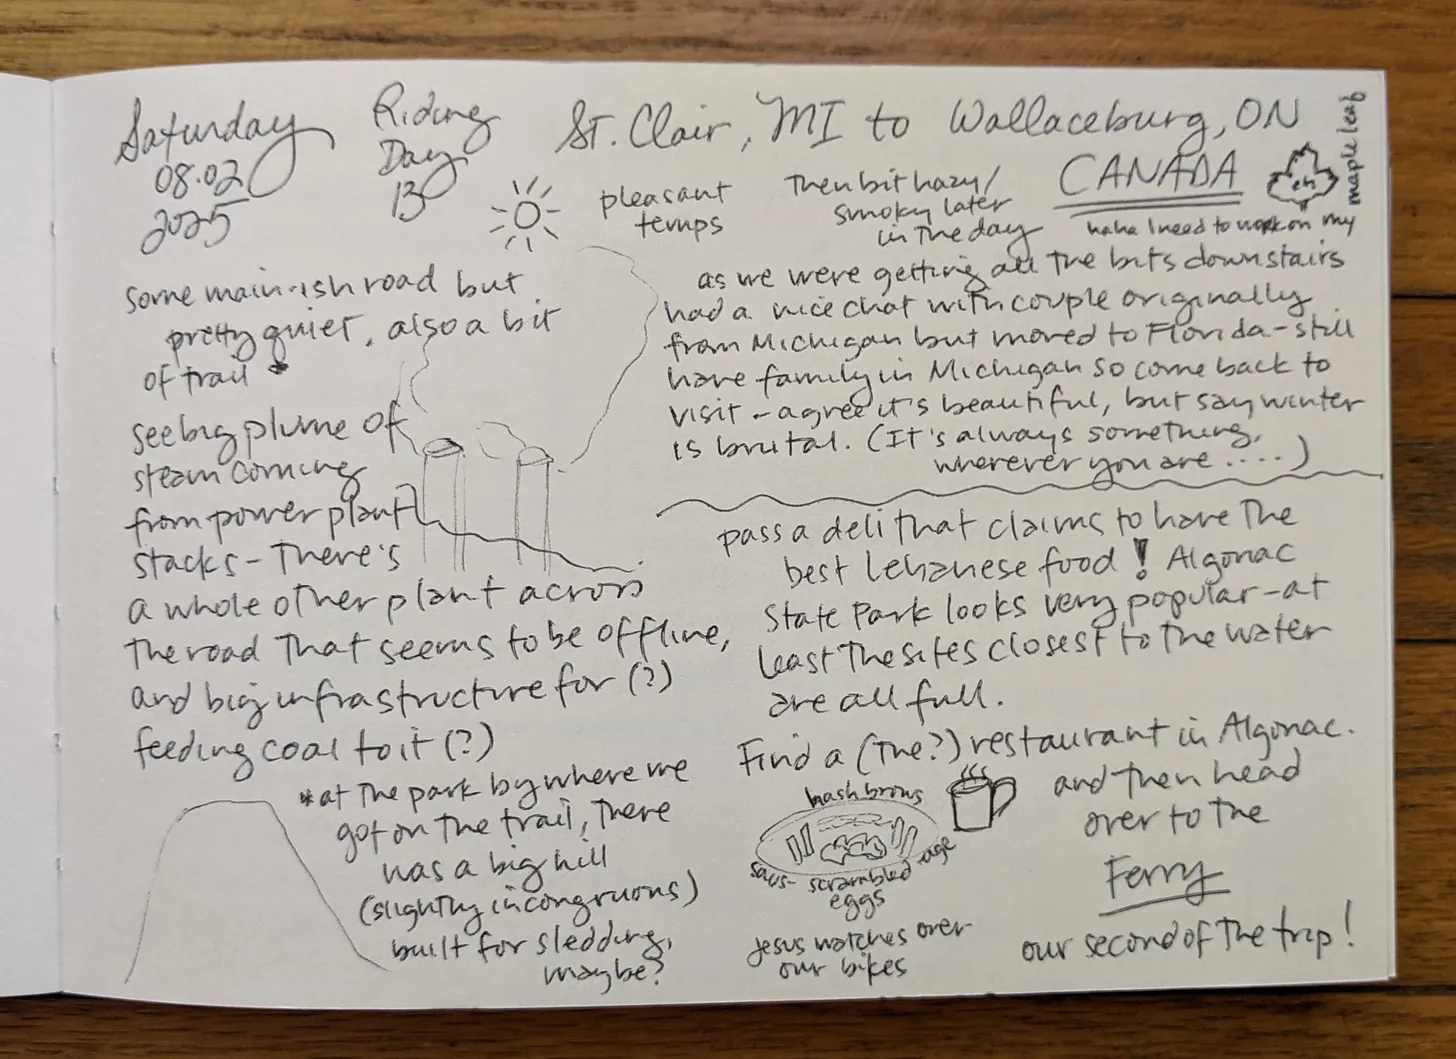 Saturday
08.02
2025
Riding
Day
13
St. Clair, MI to Wallaceburg, ON
CANADA
eh
haha I need to work on my
maple leaf
pleasant
temps
Then bit hazy/
smoky later
in the day
some main-ish road but
pretty quiet, also a bit
of trail *
see big plume of
steam coming
from power plant
stacks - There's
a whole other plant across
the road that seems to be offline,
and big infrastructure for (?)
feeding coal to it (?)
*at the park by where we
got on the trail, there
was a big hill
(slightly incongruous)
built for sledding,
maybe?
as we were getting all the bits downstairs
had a nice chat with couple originally
from Michigan but moved to Florida - still
have family in Michigan so come back to
visit - agree it's beautiful, but say winter
is brutal. (It's always something,
wherever you are ....)
pass a deli that claims to have the
best Lebanese food! Algonac
State Park looks very popular - at
least the sites closest to the water
are all full.
Find a (the?) restaurant in Algonac.
hash browns
saus-
scrambled
eggs
-age
Jesus watches over
our bikes
and then head
over to the
Ferry
our second of the trip!